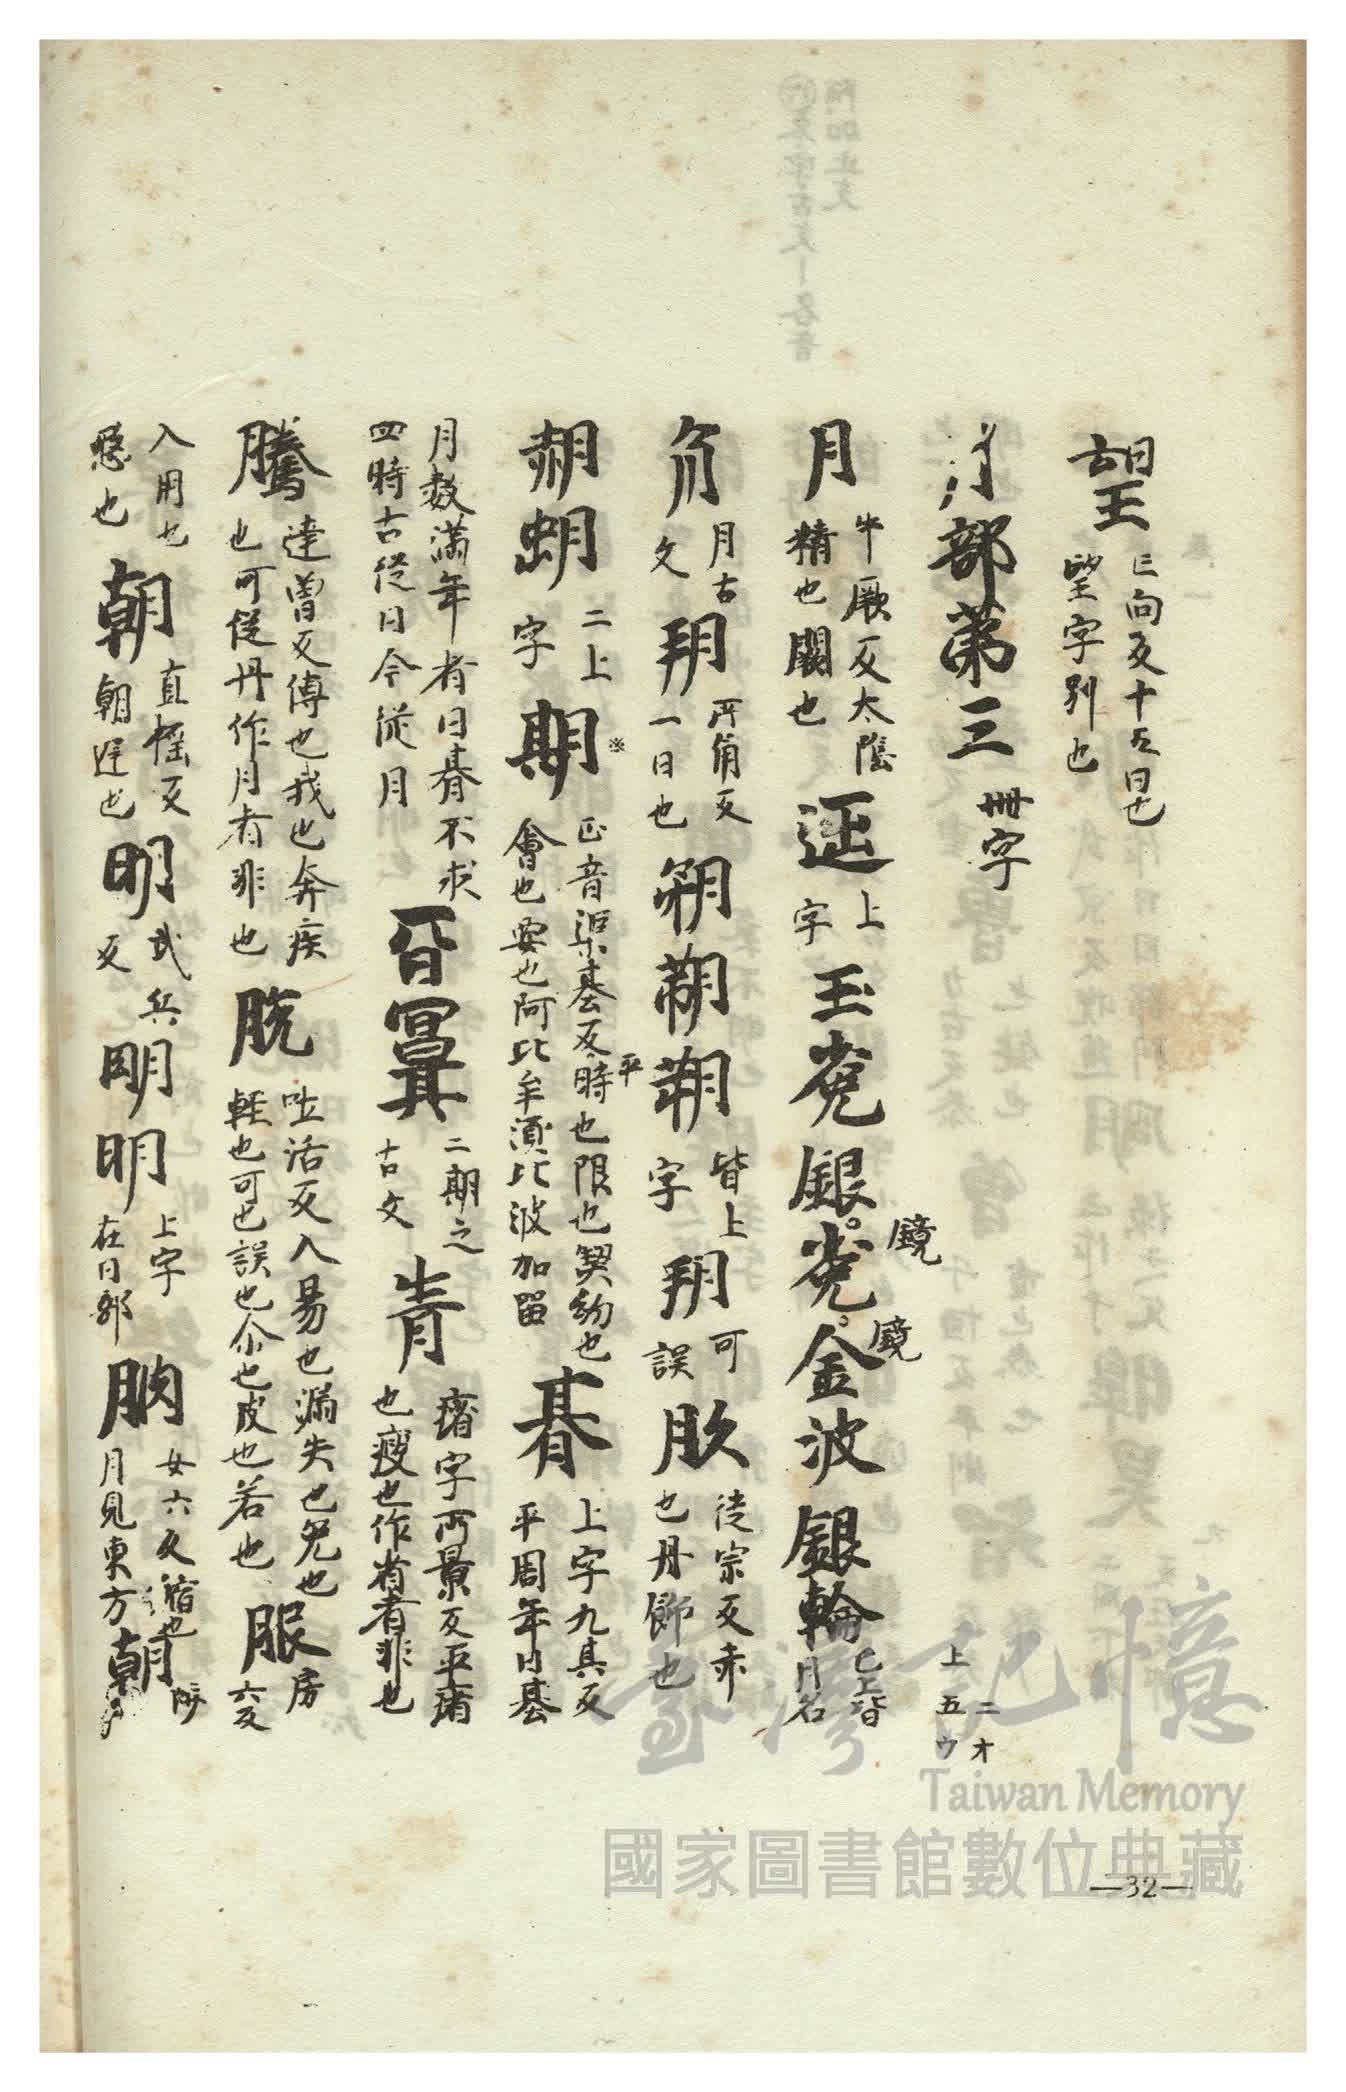 亡向反十五日也
望字別也
部第三 卌字
上五ウ
二オ
月 牛厥反太陰
精也闕也
上
字
玉兔銀兔金波銀輪 已上皆
月名
鏡
鏡
月古
文
玥 所角反
一日也
皆上
字
玥 可
誤
徒宗反赤
也丹飾也
二上
字
期 正音渠基反時也限也契約也
平
會也要也阿比牟須比波加留
朞 上字九其反
平周年曰朞
月数満年者曰朞不求
四時古従日今従月
二期之
古文
青 瘠字所景反平瘠
也瘦也作省者非也
騰 達曽反傳也我也奔疾
也可従丹作月者非也
脱 吐活反入易也漏失也免也
軽也可也誤也尒也皮也若也
服 房
六反
入用也
慇也
朝 直揺反
朝廷也
明 武兵
反
明明 上字
在日部
朒 女六反縮也
月見東方
朝
Taiwan Memory
臺灣記憶
國家圖書館數位典藏
—32—